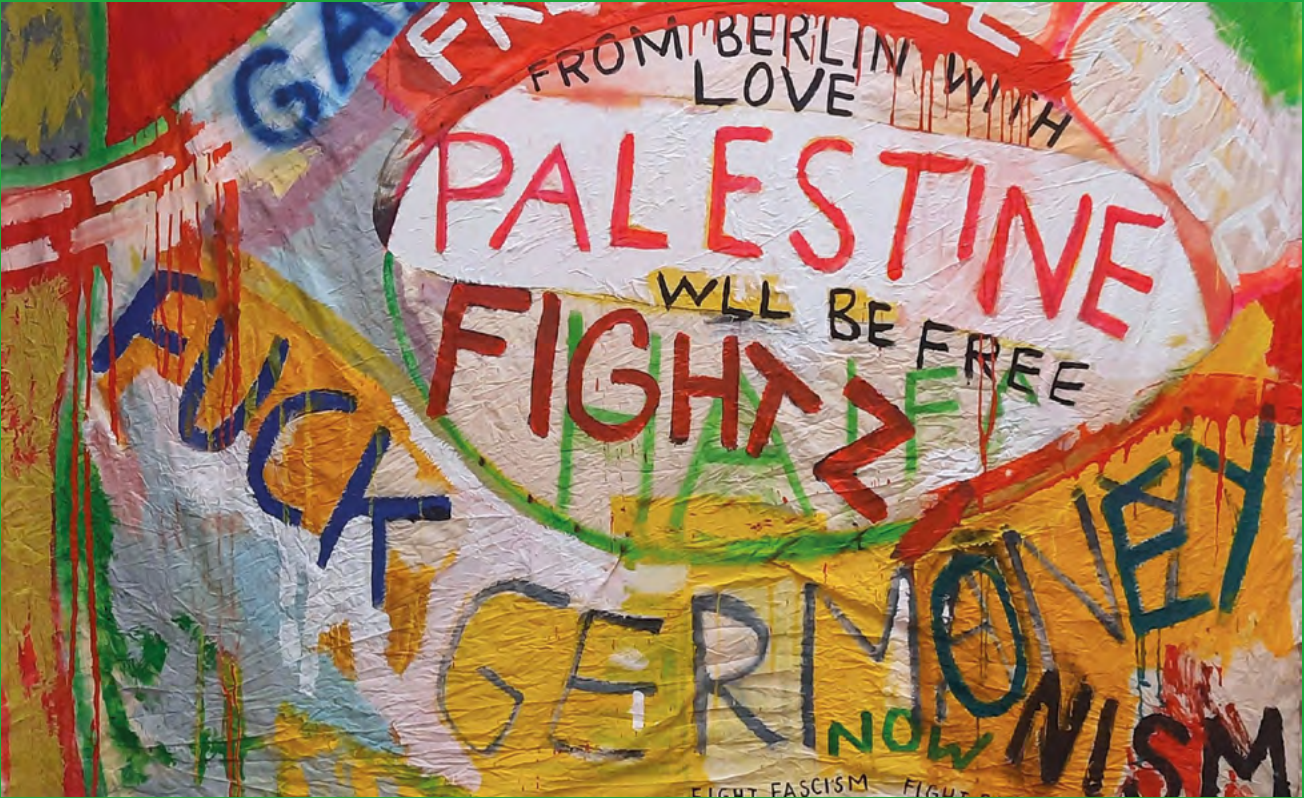 GA
FREE
FROM BERLIN WITH
LOVE
PALESTINE
WLL BE FREE
FIGHT
HAIFA
FUCK
GERMONEY
NOW
NISM
FIGHT FASCISM FIGHT